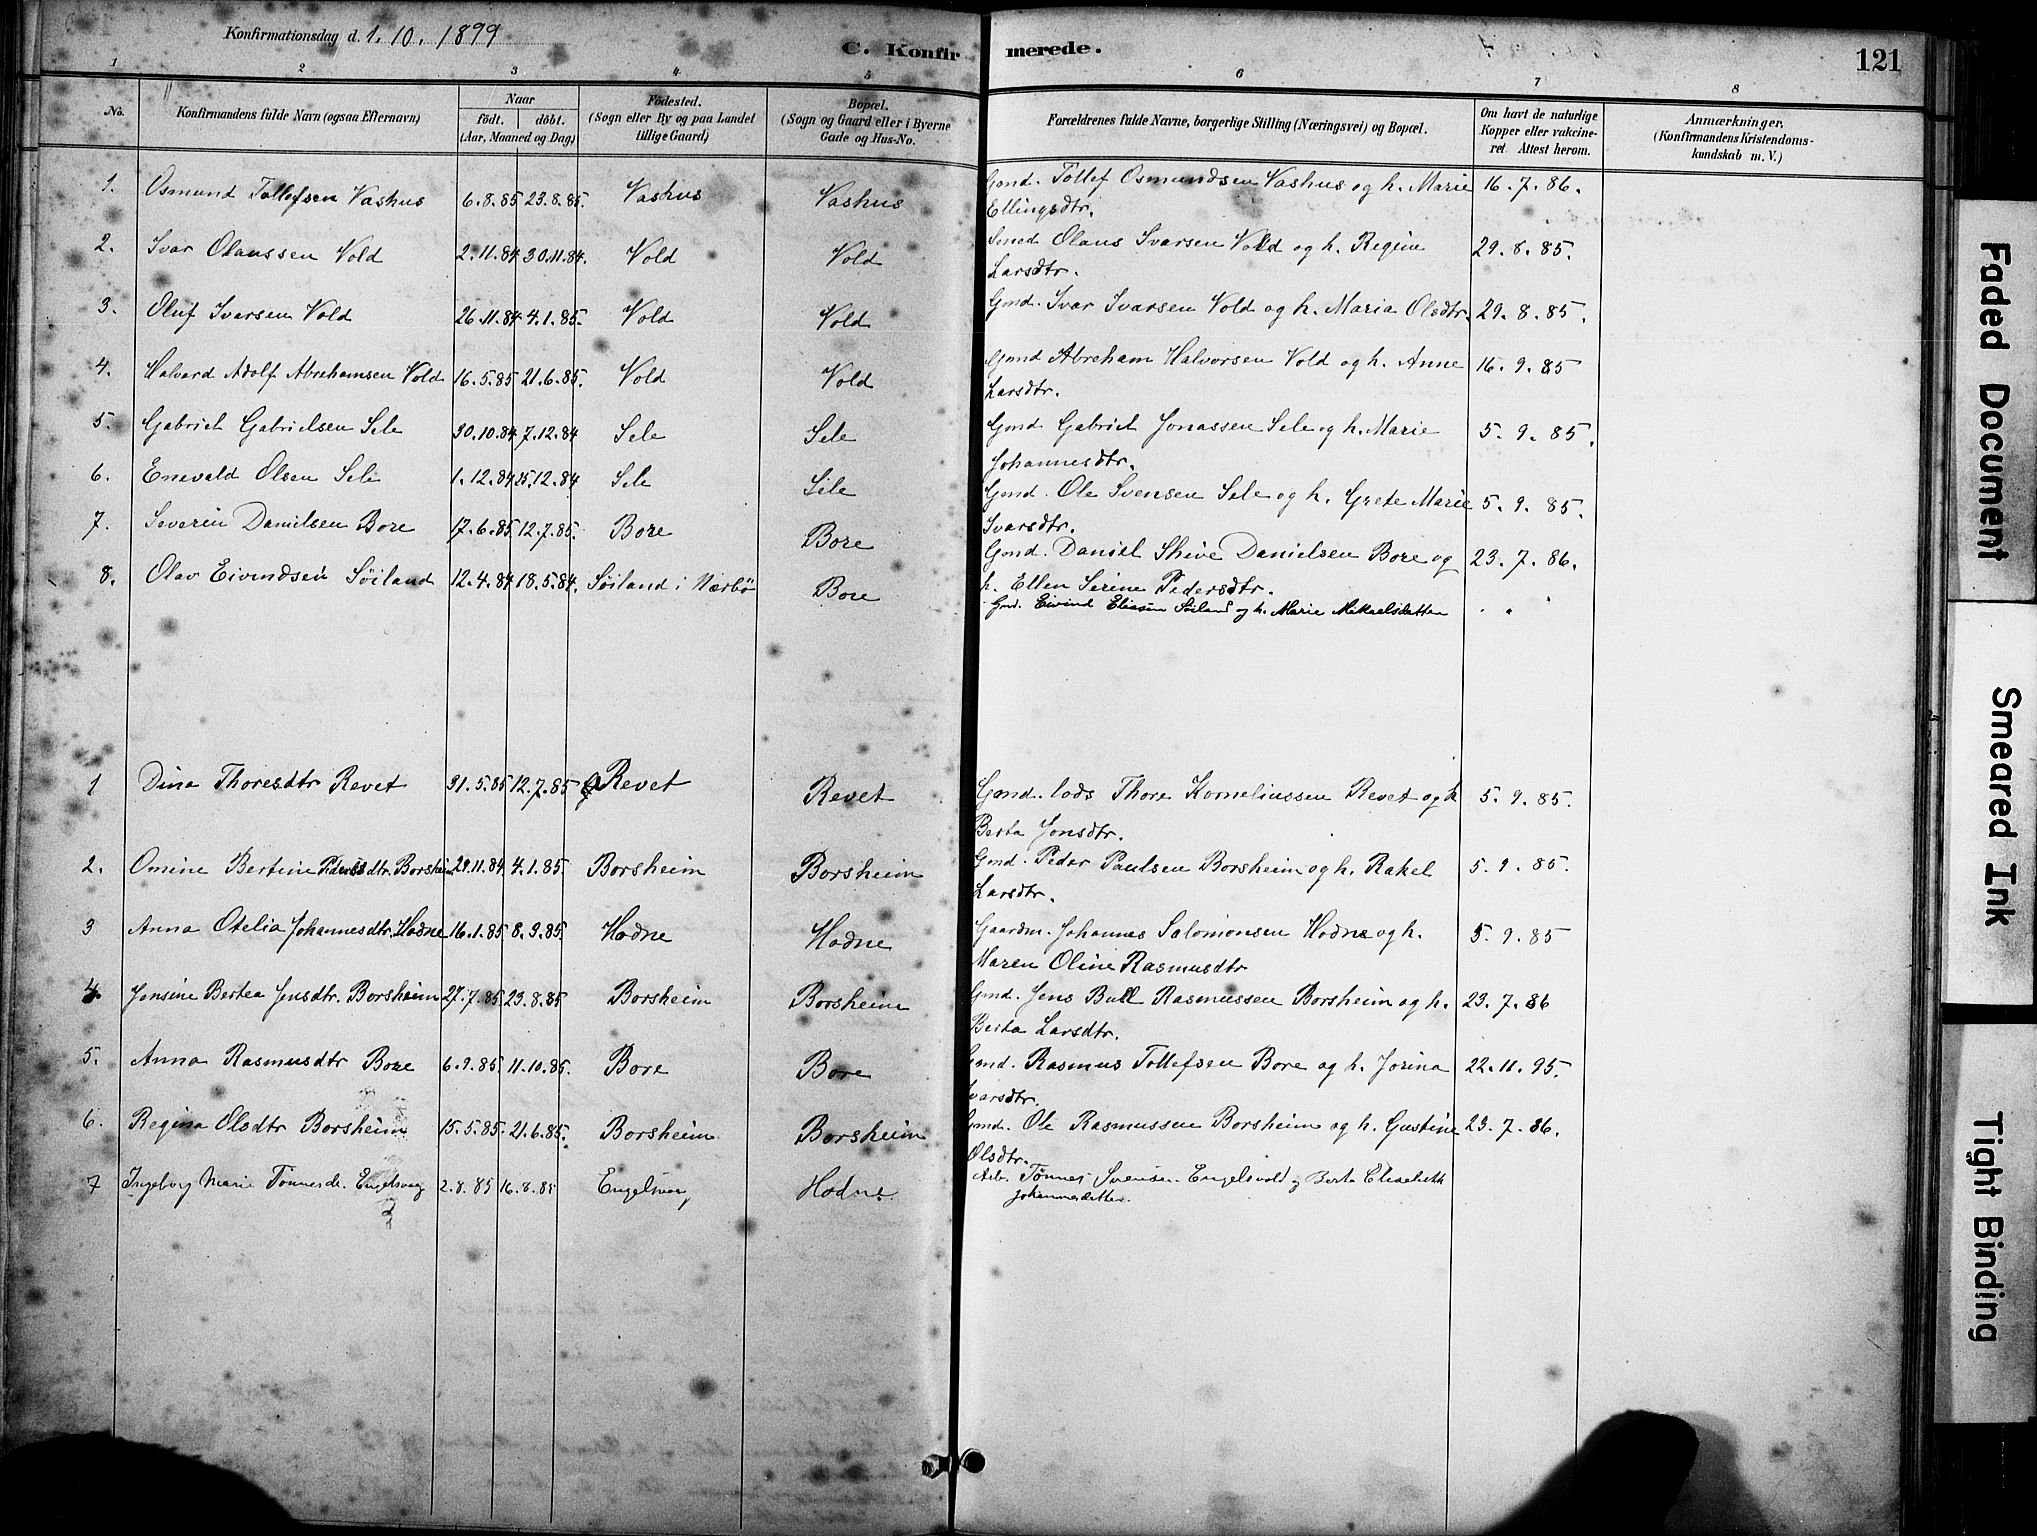 Konfirmationsdag d. 1. 10. 1899
C. Konfirmerede.
121
1 2 3 4 5 6 7 8
No.
Konfirmandens fulde Navn (ogsaa Efternavn)
Naar
födt. döbt.
(Aar, Maaned og Dag)
Födested.
(Sogn eller By og paa Landet
tillige Gaard)
Bopæl.
(Sogn og Gaard eller i Byerne
Gade og Hus-No.
Forældrenes fulde Navne, borgerlige Stilling (Næringsvei) og Bopæl.
Om havt de naturlige
Kopper eller vakcine-
ret. Attest herom.
Anmærkninger,
(Konfirmandens Kristendoms-
kundskab m. V.)
1. Osmund Tollefsen Vashus 6.8.85 23.8.85. Vashus Vashus Gmd. Tollef Osmundsen Vashus og h. Marie 16.7.86.
Ellingsdtr.
2. Ivar Olaussen Vold 2.11.84 30.11.84. Vold Vold Smed Olaus Ivarsen Vold og h. Regine 29.8.85.
Larsdtr.
3. Oluf Ivarsen Vold 26.11.84 4.1.85. Vold Vold Gmd. Ivar Ivarsen Vold og h. Maria Olsdtr. 29.8.85.
4. Halvard Adolf Abrehamsen Vold 16.5.85 21.6.85. Vold Vold Gmd Abreham Halvorsen Vold og h. Anne 16.9.85
Larsdtr.
5. Gabriel Gabrielsen Sele 30.10.84 7.12.84 Sele Sele Gmd Gabriel Jonassen Sele og h. Marie 5.9.85.
Johannesdtr.
6. Enevald Olsen Sele 1.12.84 25.12.84 Sele Sele Gmd. Ole Svensen Sele og h. Grete Marie 5.9.85.
Ivarsdtr.
7. Severin Danielsen Bore 17.6.85 12.7.85. Bore Bore Gmd. Daniel Skeie Danielsen Bore og 23.7.86.
h. Ellen Serine Pedersdtr.
8. Olav Eivindsen Söiland 12.4.84 18.5.84. Söiland i Nærbö Bore Gmd. Eivind Eliasen Söiland og h. Marie Mikaelsdatter
1 Dina Thoresdtr Revet 31.5.85 12.7.85 Revet Revet Gmd. lods Thore Korneliussen Revet og h 5.9.85.
Berta Jonsdtr.
2. Omine Bertine Pedersdtr. Borsheim 29.11.84 4.1.85. Borsheim Borsheim Gmd. Peder Paulsen Borsheim og h. Rakel 5.9.85.
Larsdtr.
3 Anna Otelia Johannesdtr. Hodne 16.1.85 8.3.85. Hodne Hodne Gaardm. Johannes Salomonsen Hodne og h. 5.9.85
Maren Oline Rasmusdtr
4. Jensine Bertea Jensdtr. Borsheim 27.7.85 23.8.85 Borsheim Borsheim Gmd. Jens Bull Rasmussen Borsheim og h. 23.7.86
Berta Larsdtr.
5. Anna Rasmusdtr Bore 6.9.85 11.10.85. Bore Bore Gmd. Rasmus Tollefsen Bore og h. Jorina 22.11.95.
Ivarsdtr.
6. Regina Olsdtr Borsheim 15.5.85. 21.6.85. Borsheim Borsheim Gmd. Ole Rasmussen Borsheim og h. Gustine 23.7.86.
Olsdtr.
7 Ingeborg Marie Tönnesdr. Engelsvog 2.8.85 16.8.85 Hodne Arb. Tönnes Svensen Engelsvold og Berta Elisabeth
Johannesdatter.
Faded Document
Smeared Ink
Tight Binding